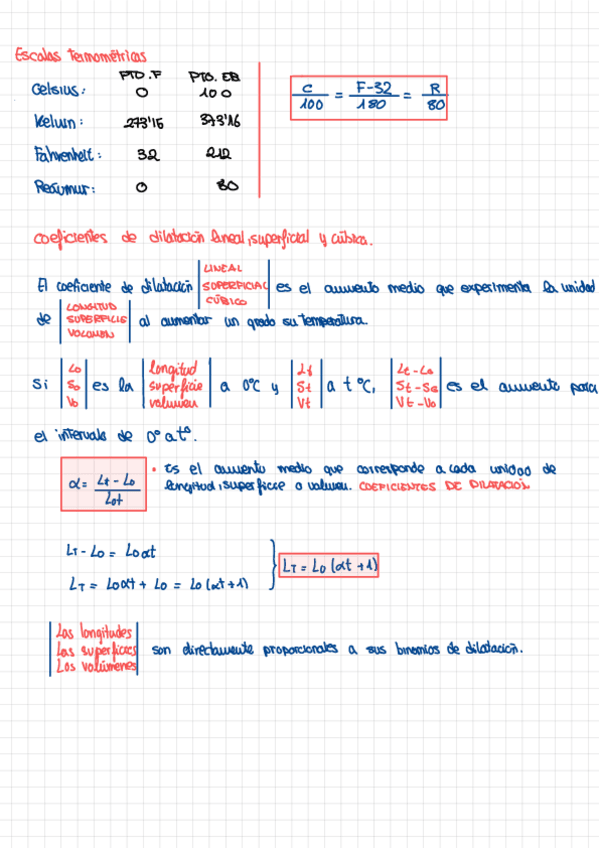 Escalas Termométricas
PTO. F PTO. EB
Celsius: 0 100
Kelvin: 273'15 373'16
Fahrenheit: 32 212
Reáumur: 0 80
C/100 = F-32/180 = R/80
coeficientes de dilatación lineal, superficial y cúbica.
El coeficiente de dilatación | LINEAL SUPERFICIAL CÚBICO | es el aumento medio que experimenta la unidad
de | LONGITUD SUPERFICIE VOLUMEN | al aumentar un grado su temperatura.
Si | Lo So Vo | es la | longitud superficie volumen | a 0°C y | Lt St Vt | a t °C, | Lt-Lo St-So Vt-Vo | es el aumento para
el intervalo de 0° a t°.
α = Lt - Lo / Lot
• Es el aumento medio que corresponde a cada unidad de
longitud, superficie o volumen. COEFICIENTES DE DILATACIÓN
LT - LO = LO αt
LT = LO αt + LO = LO (αt+1)
LT = LO (αt +1)
| Las longitudes Las superficies Los volúmenes | son directamente proporcionales a sus binomios de dilatación.